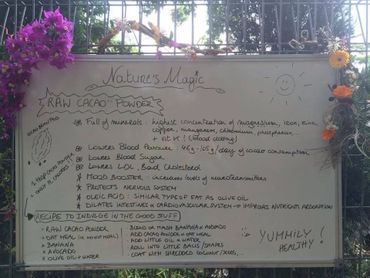 Nature's Magic
RAW CACAO POWDER
Full of minerals: highest concentration of magnesium, iron, zinc,
copper, manganese, chromium, phosphorus
+ Vit K (blood clotting)
Lowers Blood Pressure:
/day of cacao consumption
Lowers Blood Sugar
Lowers LDL, Bad Cholesterol
Mood Booster - increases levels of neurotransmitters
Protects Nervous System
Oleic Acid: similar type of fat as olive oil
Dilates Intestines + Cardiovascular System → improves nutrient absorption
Recipe to indulge in the good stuff
- Raw Cacao Powder
- Oat Meal
- Banana
- Avocado
- Olive oil + water
Blend or mash banana + avocado
Add cacao powder + oat meal
Add little oil + water
Roll into little balls / shapes
Coat with shredded coconut / seeds
Yummily
Healthy!